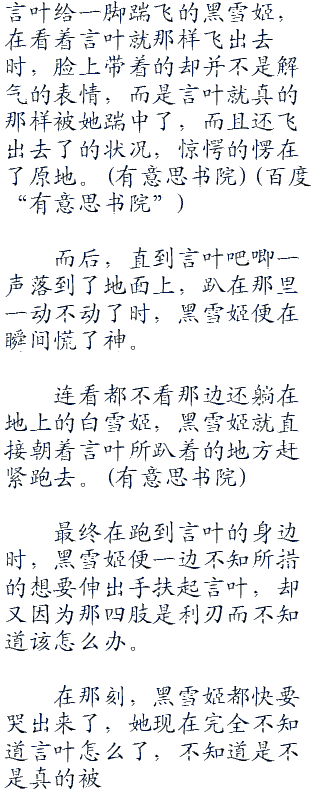 言叶给一脚踹飞的黑雪姬，
在看着言叶就那样飞出去
时，脸上带着的却并不是解
气的表情，而是言叶就真的
那样被她踹中了，而且还飞
出去了的状况，惊愕的愣在
了原地。(有意思书院)(百度
“有意思书院”)
而后，直到言叶吧唧一
声落到了地面上，趴在那里
一动不动了时，黑雪姬便在
瞬间慌了神。
连看都不看那边还躺在
地上的白雪姬，黑雪姬就直
接朝着言叶所趴着的地方赶
紧跑去。(有意思书院)
最终在跑到言叶的身边
时，黑雪姬便一边不知所措
的想要伸出手扶起言叶，却
又因为那四肢是利刃而不知
道该怎么办。
在那刻，黑雪姬都快要
哭出来了，她现在完全不知
道言叶怎么了，不知道是不
是真的被